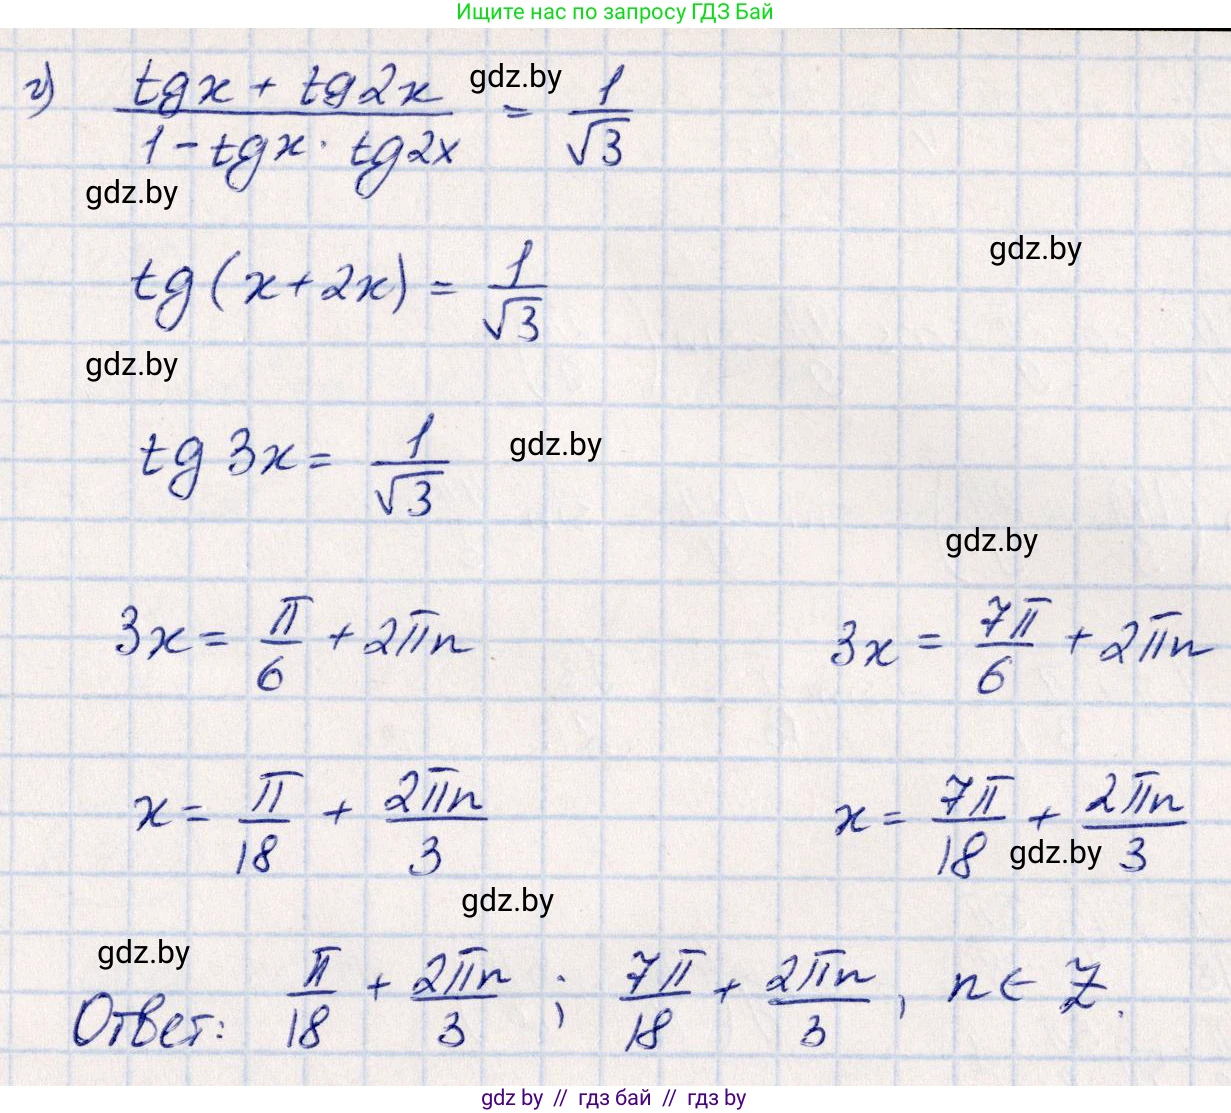 Ищите нас по запросу ГДЗ Бай
г) (tgx + tg2x)/(1 - tgx · tg2x) = 1/√3
gdz.by
gdz.by
gdz.by
tg(x+2x) = 1/√3
gdz.by
tg 3x = 1/√3
gdz.by
gdz.by
3x = π/6 + 2πn
3x = 7π/6 + 2πn
x = π/18 + 2πn/3
x = 7π/18 + 2πn/3
gdz.by
gdz.by
gdz.by
Ответ: π/18 + 2πn/3 ; 7π/18 + 2πn/3 , n ∈ Z.
gdz.by // гдз бай // гдз by